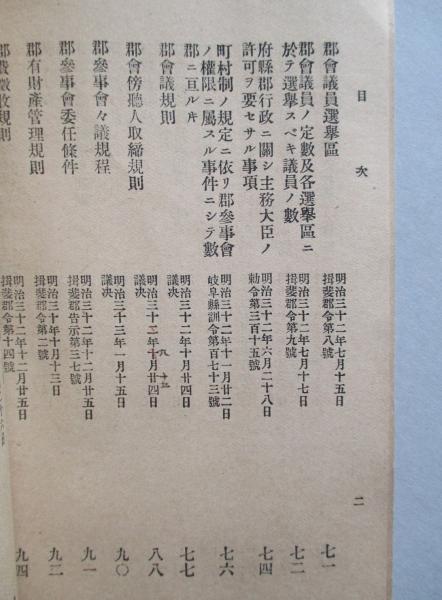 目次
二
郡會議員選擧區
明治三十二年七月十五日
揖斐郡令第八號
七一
郡會議員ノ定數及各選擧區ニ
於テ選擧スベキ議員ノ數
明治三十二年七月十七日
揖斐郡令第九號
七二
府縣郡行政ニ關シ主務大臣ノ
許可ヲ要セサル事項
明治三十二年六月二十八日
勅令第三百十五號
七四
町村制ノ規定ニ依リ郡參事會
ノ權限ニ屬スル事件ニシテ數
郡ニ亘ルキ
明治三十二年十一月廿二日
岐阜縣訓令第百七十三號
七六
郡會議規則
明治三十二年十月廿四日
議决
七七
郡會傍聽人取締規則
明治三十二年十月廿四日
議决
九
八八
郡參事會々議規程
明治三十三年一月十五日
議决
九〇
郡參事會委任條件
明治三十二年十二月廿五日
揖斐郡告示第三七號
九一
郡有財產管理規則
明治三十年十月十三日
揖斐郡令第二號
九二
郡費徵收規則
明治三十二年十二月廿五日
揖斐郡令第十四號
九四